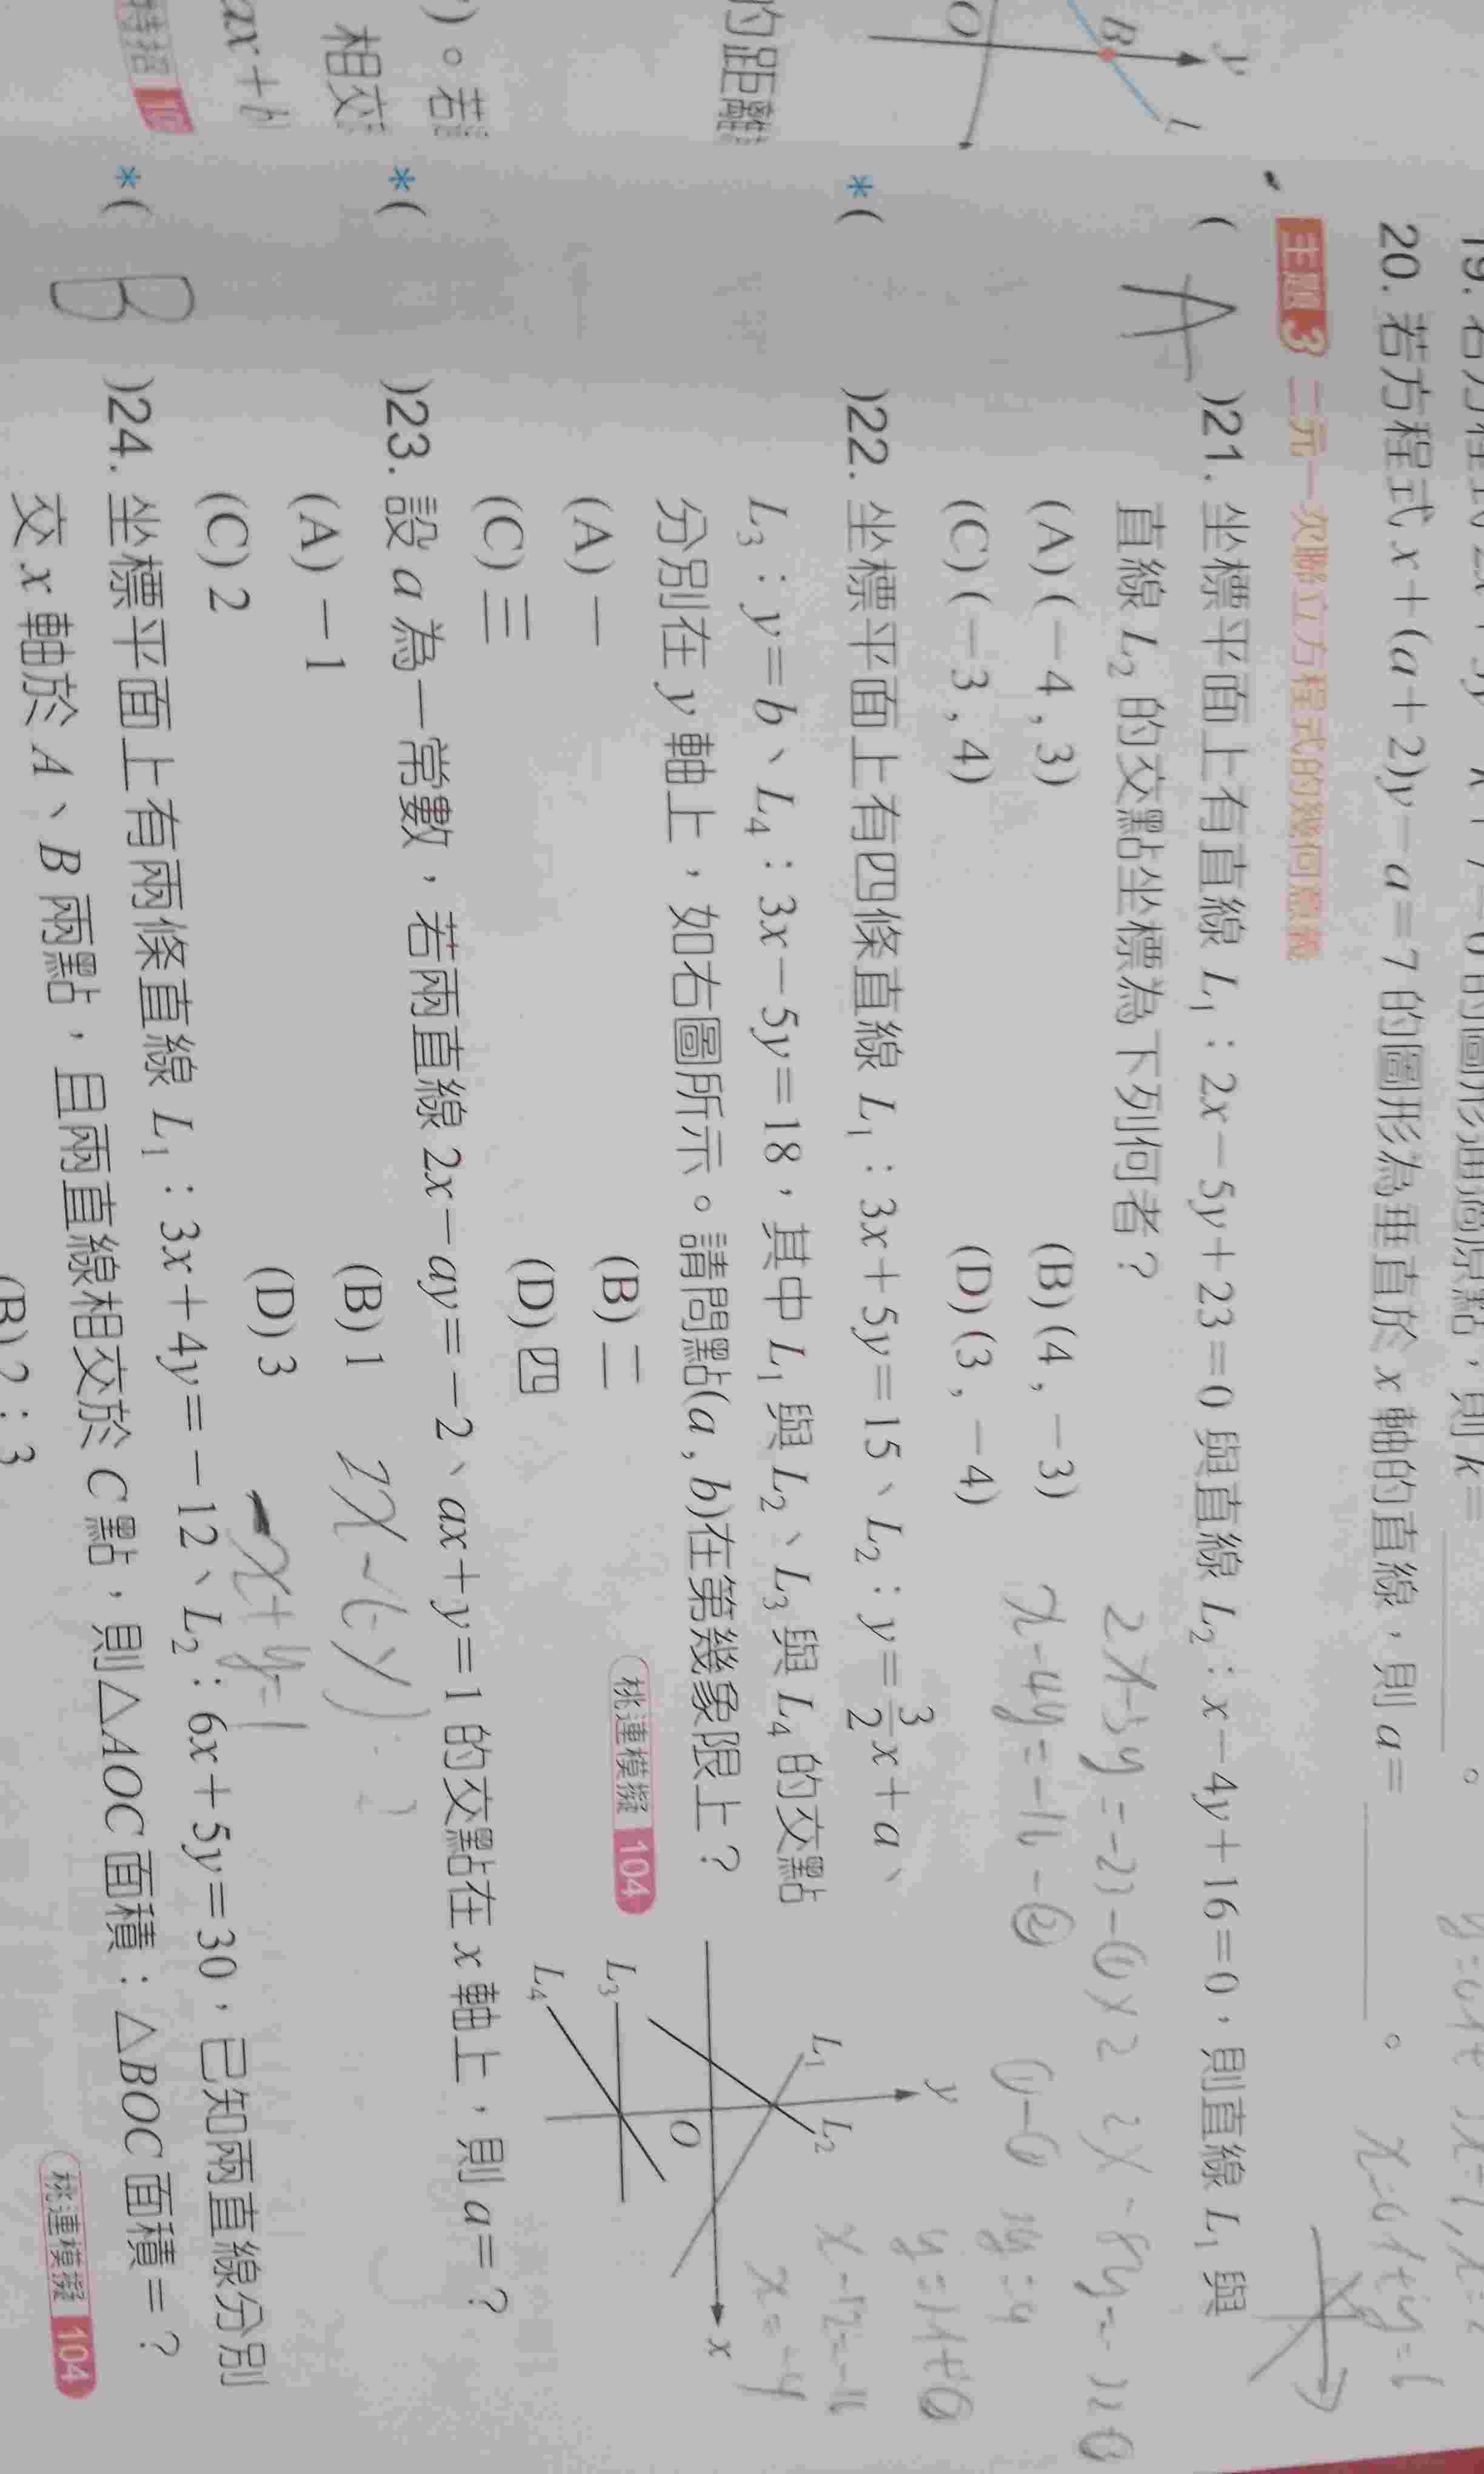 20. 若方程式 x+(a+2)y-a=7 的圖形為垂直於 x 軸的直線，則 a=＿＿＿。
主題 3 二元一次聯立方程式的幾何意義
( A )21. 坐標平面上有直線 L₁：2x-5y+23=0 與直線 L₂：x-4y+16=0，則直線 L₁ 與
直線 L₂ 的交點坐標為下列何者？
(A) (-4 , 3) (B) (4 , -3)
(C) (-3 , 4) (D) (3 , -4)
*( )22. 坐標平面上有四條直線 L₁：3x+5y=15、L₂：y=3/2x+a、
L₃：y=b、L₄：3x-5y=18，其中 L₁ 與 L₂、L₃ 與 L₄ 的交點
分別在 y 軸上，如右圖所示。請問點(a , b)在第幾象限上？
桃連模擬 104
(A) 一 (B) 二
(C) 三 (D) 四
L₁ L₂ L₃ L₄ O x y
*( )23. 設 a 為一常數，若兩直線 2x-ay=-2、ax+y=1 的交點在 x 軸上，則 a=？
(A) -1 (B) 1
(C) 2 (D) 3
*( B )24. 坐標平面上有兩條直線 L₁：3x+4y=-12、L₂：6x+5y=30，已知兩直線分別
交 x 軸於 A、B 兩點，且兩直線相交於 C 點，則△AOC 面積：△BOC 面積=？
桃連模擬 104
(B) 2：3
y
B
L
O
的距離
)。若
相交
ax+b
特招
x-4y=-16-②
x+y=1